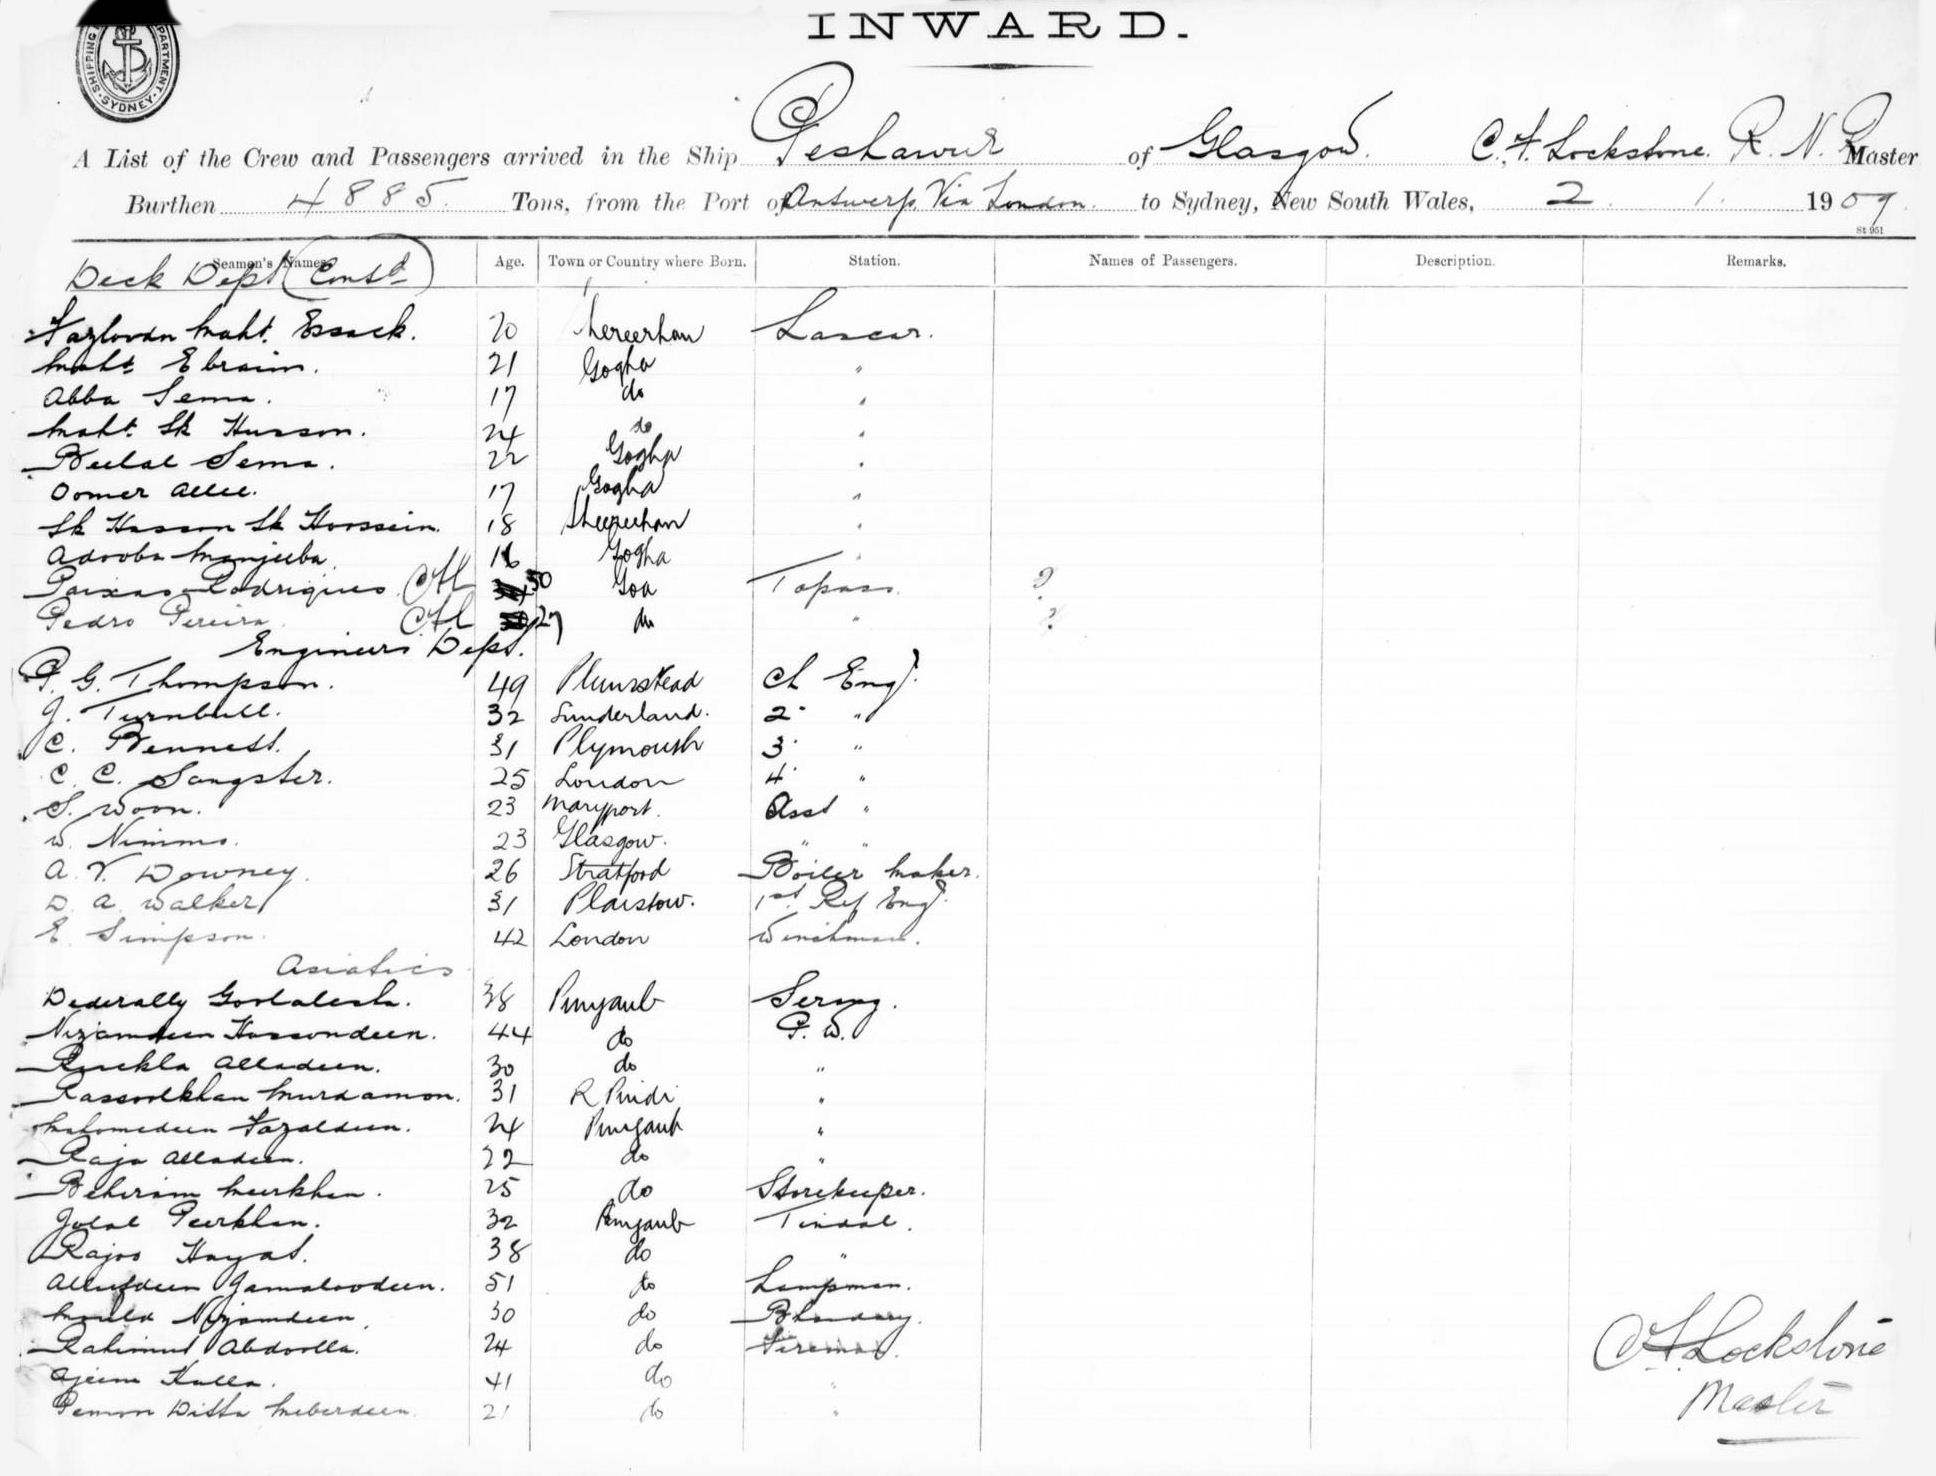 SHIPPING DEPARTMENT SYDNEY
INWARD.
A List of the Crew and Passengers arrived in the Ship Peshawur of Glasgow. C. F. Lockstone. R. N. R. Master
Burthen 4885. Tons, from the Port of Antwerp Via London. to Sydney, New South Wales, 2. 1. 1909.
St 951
Seamen's Names. Age. Town or Country where Born. Station. Names of Passengers. Description. Remarks.
Deck Dept (Contd)
Fazlovdn Maht. Essack. 20 Lascar.
Maht Ebraim. 21 Gogha "
Abba Sema. 17 do "
Maht. Sk Husson. 24 do "
Beelal Sema. 22 Gogha "
Oomer Allee. 17 Gogha "
Sk Hasson Sk Hoossein. 18 "
Adooba Manjeeba. 16 Gogha "
Paixao Rodrigues CFL 30 Goa Topass. ?
Pedro Pereira. CFL 27 do " ?
Engineers Dept.
P. G. Thompson. 49 Plumstead Ch Engr.
J. Turnbull. 32 Sunderland. 2. "
C. Bennett. 31 Plymouth 3. "
C. C. Sangster. 25 London 4. "
S. Woon. 23 Maryport. Asst "
W. Nimmo. 23 Glasgow. " "
A. V. Downey. 26 Stratford Boiler Maker.
D. A. Walker 31 Plaistow. 1st Ref Engr.
E. Simpson. 42 London Winchman.
Asiatics
Dederally Goolalesha. 38 Punjaub Serang.
Nizamdeen Hassondeen. 44 do P. W.
Ruckla Alladeen. 30 do "
Rassoolkhan Murdamon. 31 R Pindi "
Mahomedeen Fazaldeen. 24 Punjaub "
Raja Alladeen. 22 do "
Behram Meerkhan. 25 do Storekeeper.
Jolal Peerkhan. 32 Punjaub Tindal.
Rajoo Hayat. 38 do "
Allufdeen Jamaloodeen. 51 do Lampman.
Moula Nizamdeen. 30 do Bhandary.
Rahimut Abdoolla. 24 do Fireman.
Ajeem Kalla. 41 do "
Ditta 21 do "
C F. Lockstone
Master